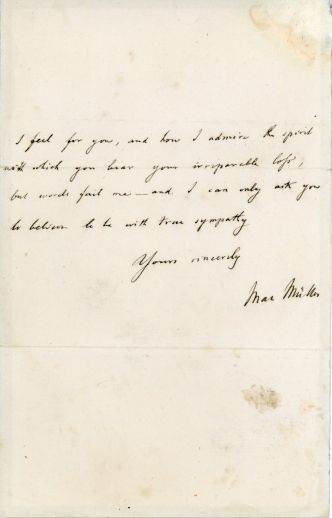 I feel for you, and how I admire the spirit
with which you bear your irreparable loss,
but words fail me — and I can only ask you
to believe to be with true sympathy
Yours sincerely
Max Müller